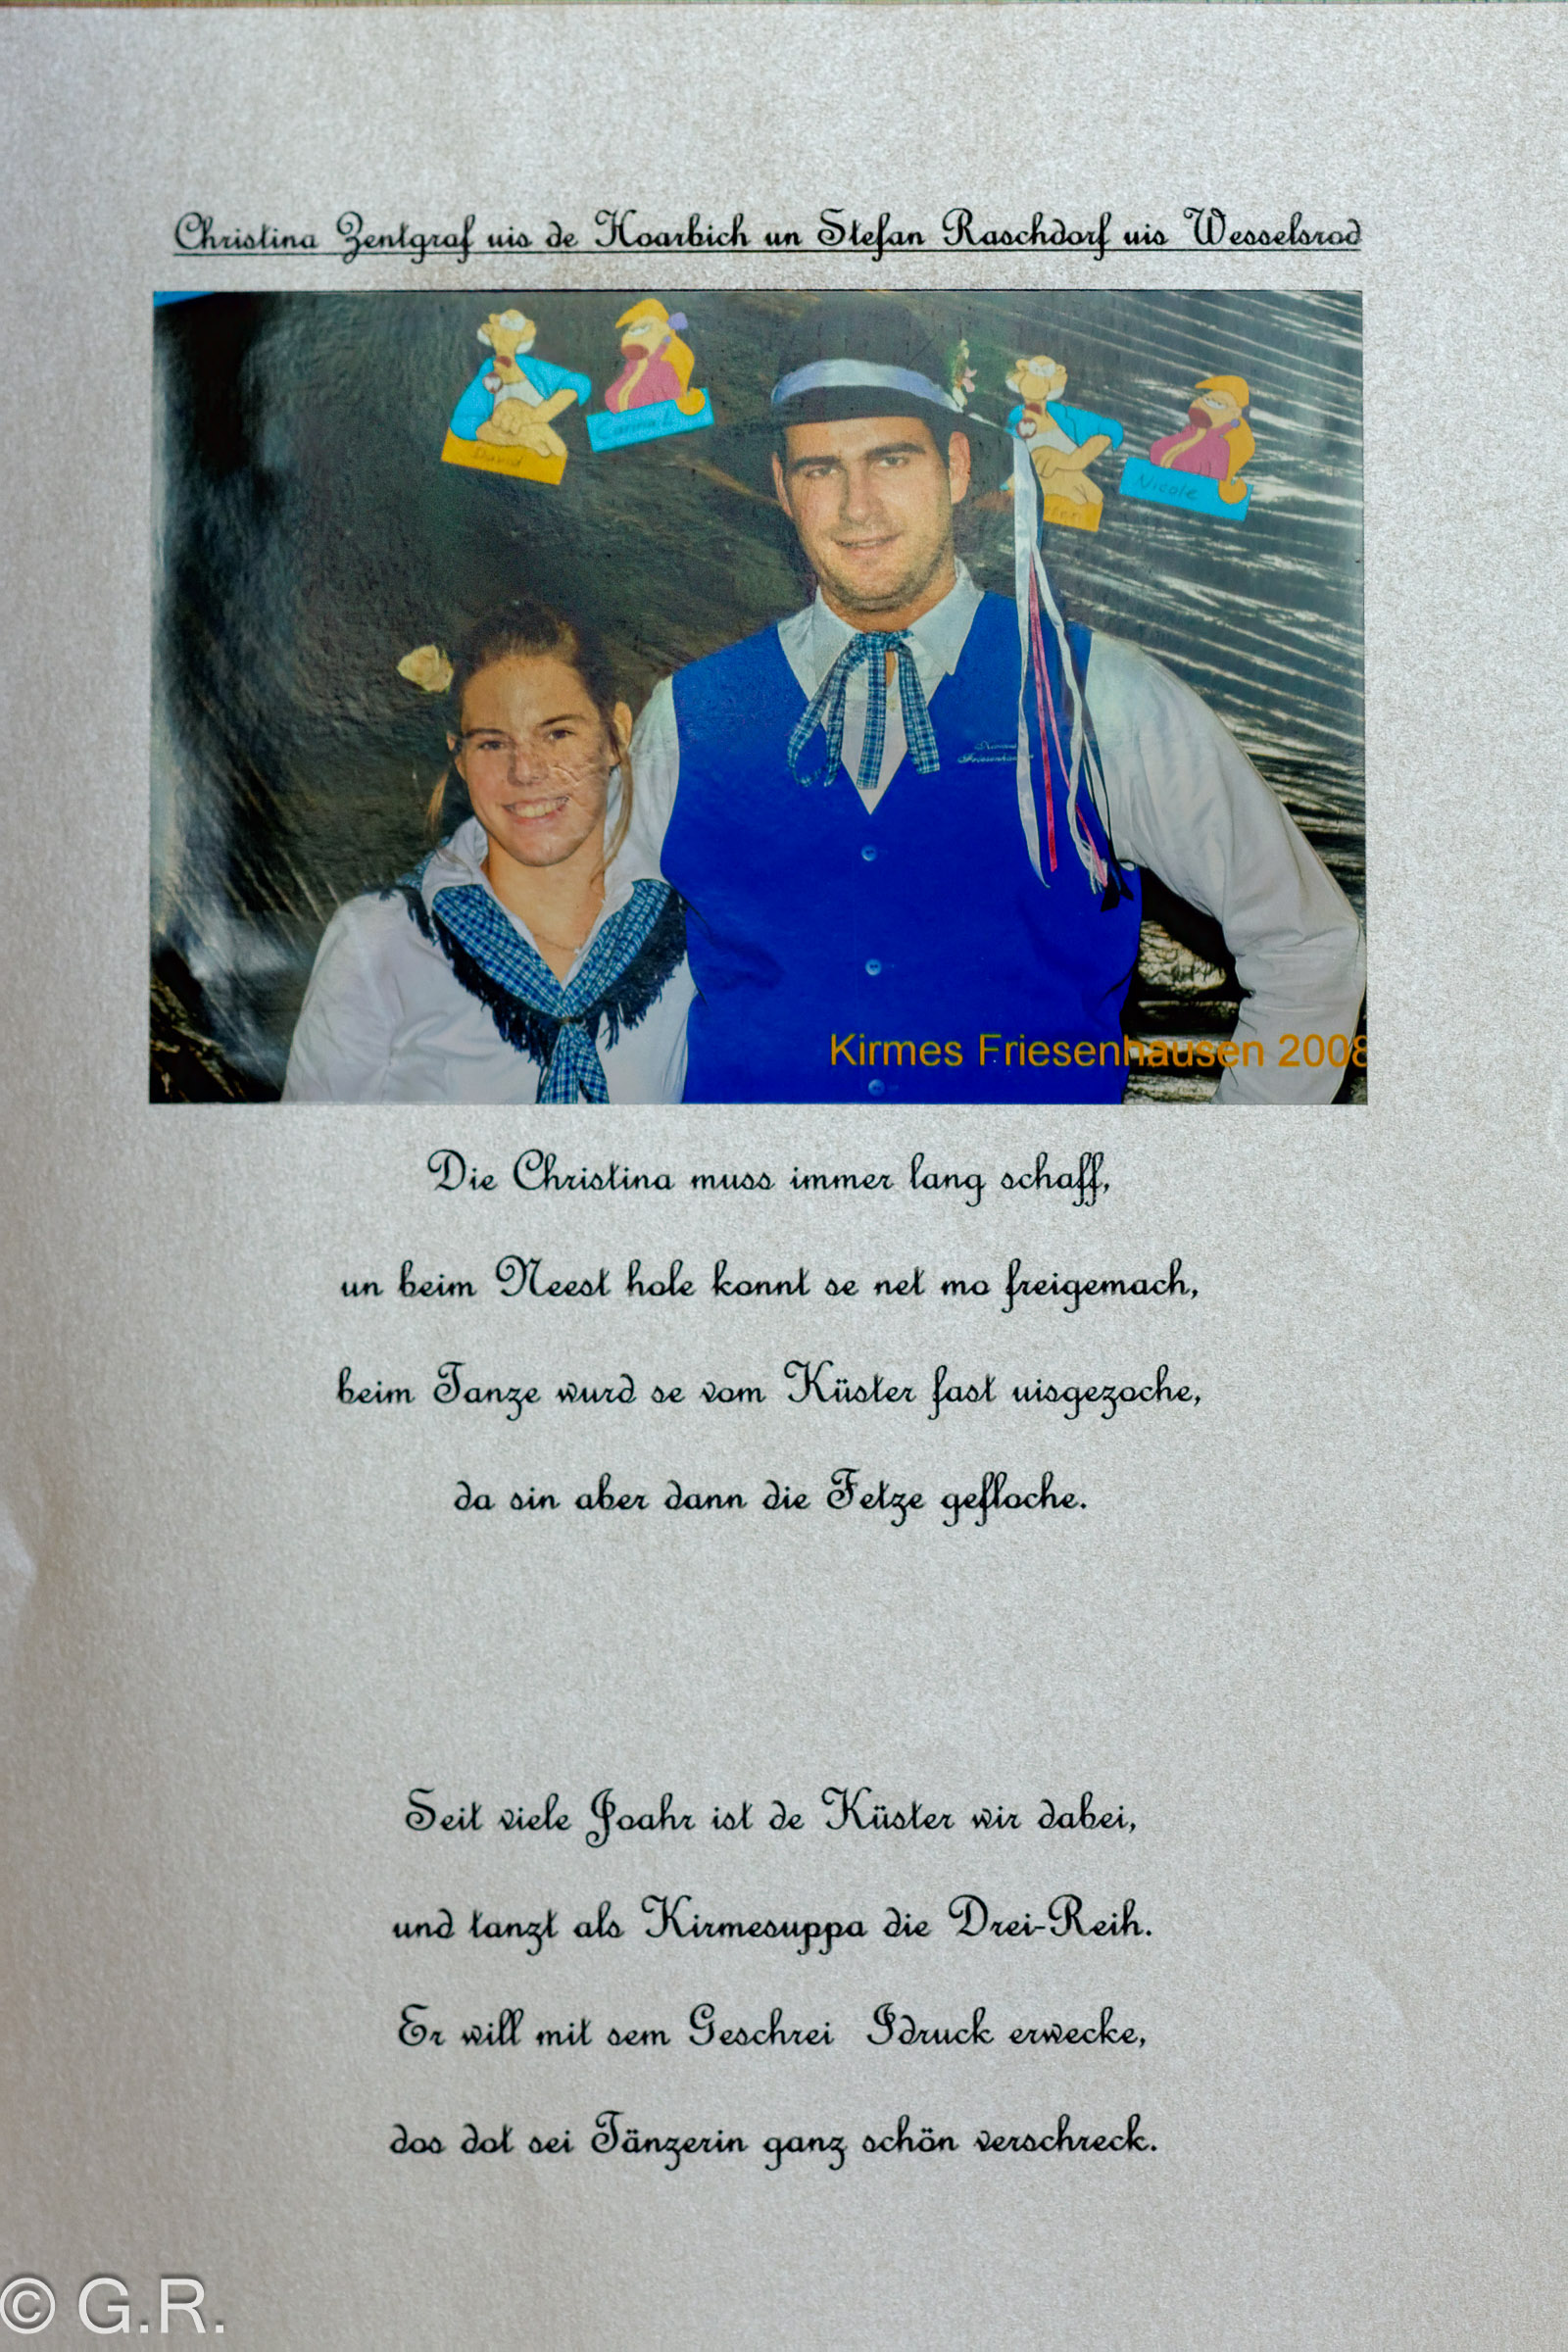 Christina Zentgraf uis de Hoarbich un Stefan Raschdorf uis Wesselsrod
David
Nicole
Friesenhausen
Kirmes Friesenhausen 2008
Die Christina muss immer lang schaff,
un beim Neest hole konnt se net mo freigemach,
beim Tanze wurd se vom Küster fast uisgezoche,
da sin aber dann die Fetze gefloche.
Seit viele Joahr ist de Küster wir dabei,
und tanzt als Kirmesuppa die Drei-Reih.
Er will mit sem Geschrei Idruck erwecke,
dos dot sei Tänzerin ganz schön verschreck.
© G.R.